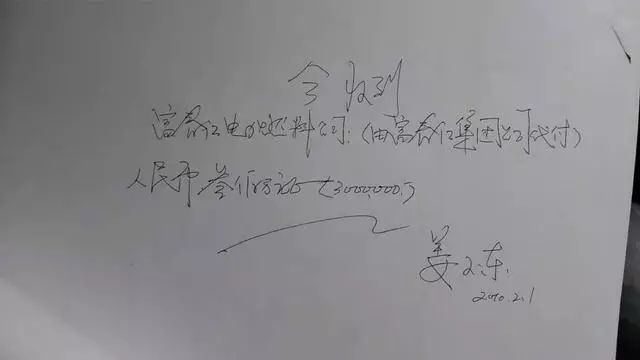 今收到
富春江电力燃料公司:(由富春江集团公司代付)
人民币叁佰万元正(3000,000.)
姜
2010.2.1